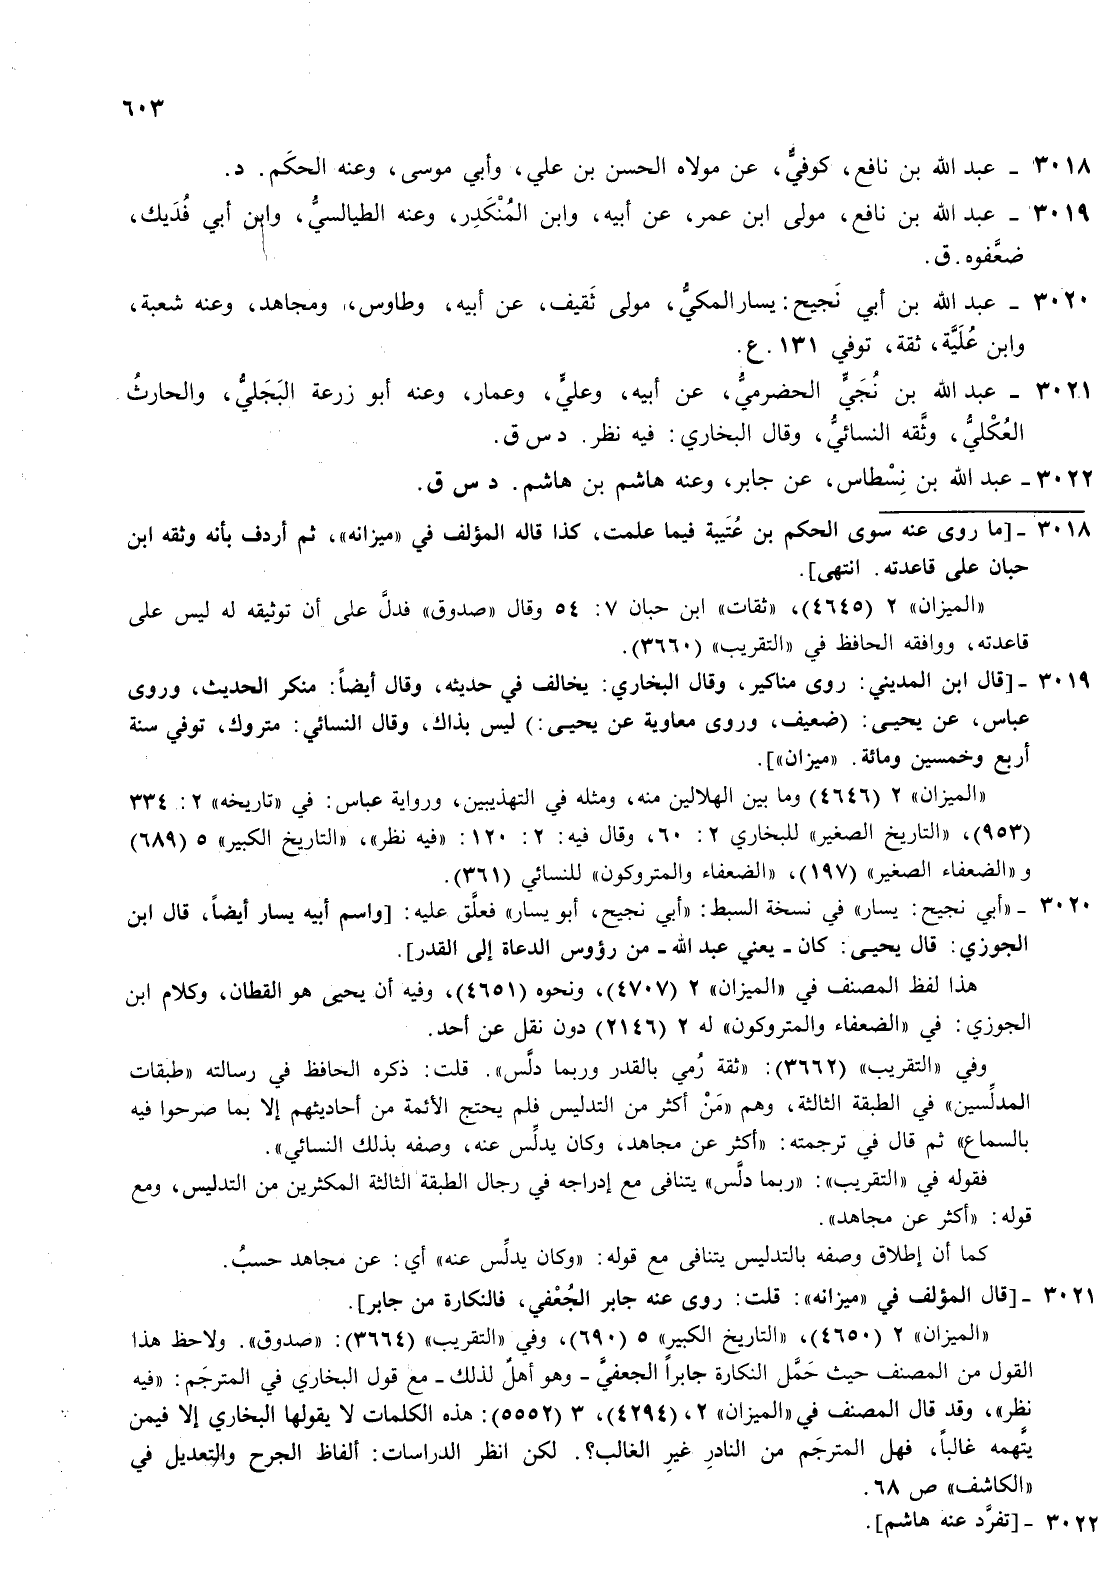 ٦٠٣
٣٠١٨ ـ عبد الله بن نافع، كوفيٌّ، عن مولاه الحسن بن علي، وأبي موسى، وعنه الحكَم. د.
٣٠١٩ ـ عبد الله بن نافع، مولى ابن عمر، عن أبيه، وابن المُنْكَدِر، وعنه الطيالسيُّ، وابن أبي فُدَيك،
ضعَّفوه. ق.
٣٠٢٠ ـ عبد الله بن أبي نَجيح: يسار المكيُّ، مولى ثَقيف، عن أبيه، وطاوس، ومجاهد، وعنه شعبة،
وابن عُلَيَّة، ثقة، توفي ١٣١. ع.
٣٠٢١ ـ عبد الله بن نُجَيٍّ الحضرميُّ، عن أبيه، وعليٍّ، وعمار، وعنه أبو زرعة البَجَليُّ، والحارثُ
العُكْليُّ، وثَّقه النسائيُّ، وقال البخاري: فيه نظر. د س ق.
٣٠٢٢ ـ عبد الله بن نِسْطاس، عن جابر، وعنه هاشم بن هاشم. د س ق.
٣٠١٨ ـ [ما روى عنه سوى الحكم بن عُتَيبة فيما علمت، كذا قاله المؤلف في «ميزانه»، ثم أردف بأنه وثقه ابن
حبان على قاعدته. انتهى].
«الميزان» ٢ (٤٦٤٥)، «ثقات» ابن حبان ٧: ٥٤ وقال «صدوق» فدلَّ على أن توثيقه له ليس على
قاعدته، ووافقه الحافظ في «التقريب» (٣٦٦٠).
٣٠١٩ ـ [قال ابن المديني: روى مناكير، وقال البخاري: يخالف في حديثه، وقال أيضاً: منكر الحديث، وروى
عباس، عن يحيى: (ضعيف، وروى معاوية عن يحيى:) ليس بذاك، وقال النسائي: متروك، توفي سنة
أربع وخمسين ومائة. «ميزان»].
«الميزان» ٢ (٤٦٤٦) وما بين الهلالين منه، ومثله في التهذيبين، ورواية عباس: في «تاريخه» ٢: ٣٣٤
(٩٥٣)، «التاريخ الصغير» للبخاري ٢: ٦٠، وقال فيه: ٢: ١٢٠: «فيه نظر»، «التاريخ الكبير» ٥ (٦٨٩)
و «الضعفاء الصغير» (١٩٧)، «الضعفاء والمتروكون» للنسائي (٣٦١).
٣٠٢٠ ـ «أبي نجيح: يسار» في نسخة السبط: «أبي نجيح، أبو يسار» فعلَّق عليه: [واسم أبيه يسار أيضاً، قال ابن
الجوزي: قال يحيى: كان ـ يعني عبد الله ـ من رؤوس الدعاة إلى القدر].
هذا لفظ المصنف في «الميزان» ٢ (٤٧٠٧)، ونحوه (٤٦٥١)، وفيه أن يحيى هو القطان، وكلام ابن
الجوزي: في «الضعفاء والمتروكون» له ٢ (٢١٤٦) دون نقل عن أحد.
وفي «التقريب» (٣٦٦٢): «ثقة رُمي بالقدر وربما دلَّس». قلت: ذكره الحافظ في رسالته «طبقات
المدلِّسين» في الطبقة الثالثة، وهم «مَنْ أكثر من التدليس فلم يحتج الأئمة من أحاديثهم إلا بما صرحوا فيه
بالسماع» ثم قال في ترجمته: «أكثر عن مجاهد، وكان يدلِّس عنه، وصفه بذلك النسائي».
فقوله في «التقريب»: «ربما دلَّس» يتنافى مع إدراجه في رجال الطبقة الثالثة المكثرين من التدليس، ومع
قوله: «أكثر عن مجاهد».
كما أن إطلاق وصفه بالتدليس يتنافى مع قوله: «وكان يدلِّس عنه» أي: عن مجاهد حسبُ.
٣٠٢١ ـ [قال المؤلف في «ميزانه»: قلت: روى عنه جابر الجُعْفي، فالنكارة من جابر].
«الميزان» ٢ (٤٦٥٠)، «التاريخ الكبير» ٥ (٦٩٠)، وفي «التقريب» (٣٦٦٤): «صدوق». ولاحظ هذا
القول من المصنف حيث حَمَّل النكارة جابراً الجعفيَّ ـ وهو أهلٌ لذلك ـ مع قول البخاري في المترجَم: «فيه
نظر»، وقد قال المصنف في «الميزان» ٢، (٤٢٩٤)، ٣ (٥٥٥٢): هذه الكلمات لا يقولها البخاري إلا فيمن
يتَّهمه غالباً، فهل المترجَم من النادرِ غيرِ الغالب؟. لكن انظر الدراسات: ألفاظ الجرح والتعديل في
«الكاشف» ص ٦٨.
٣٠٢٢ ـ [تفرَّد عنه هاشم].